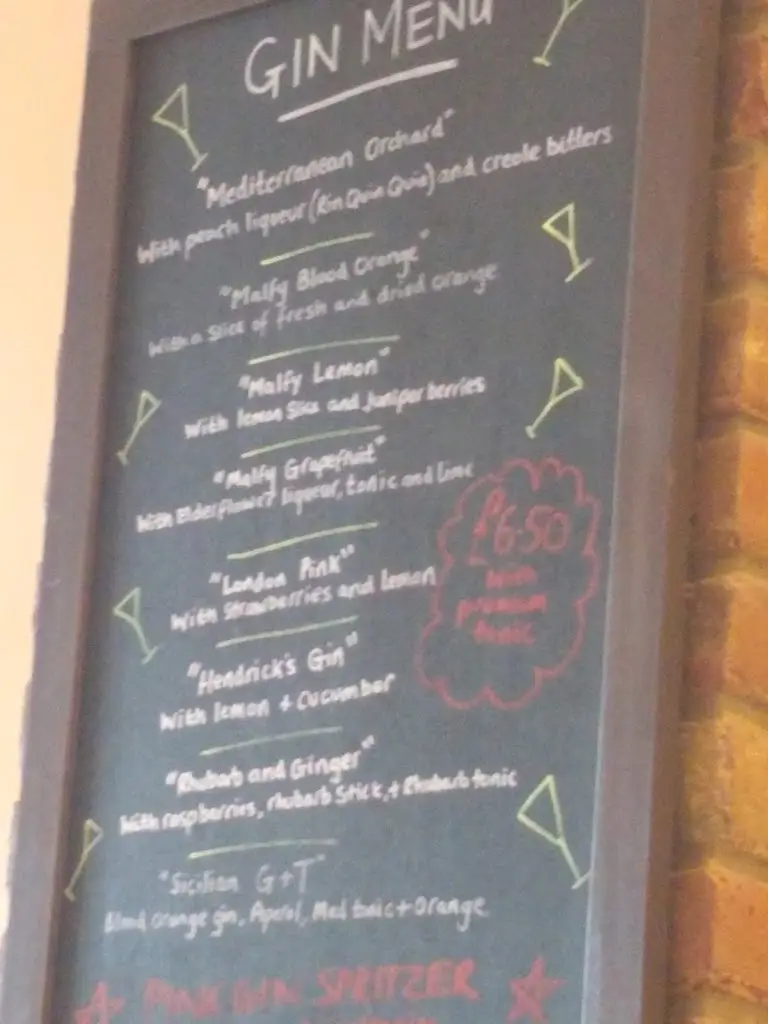 GIN MENU
"Mediterranean Orchard"
With peach liqueur (Rin Quin Quin) and creole bitters
"Malfy Blood Orange"
With a slice of fresh and dried orange
"Malfy Lemon"
With lemon slice and Juniper berries
"Malfy Grapefruit"
With Elderflower liqueur, tonic and lime
£6.50
with
premium
tonic
"London Pink"
With Strawberries and lemon
"Hendrick's Gin"
With lemon + Cucumber
"Rhubarb and Ginger"
With raspberries, rhubarb Stick, + Rhubarb tonic
"Sicilian G+T"
Blood orange gin, Aperol, Med tonic + Orange
PINK GIN SPRITZER